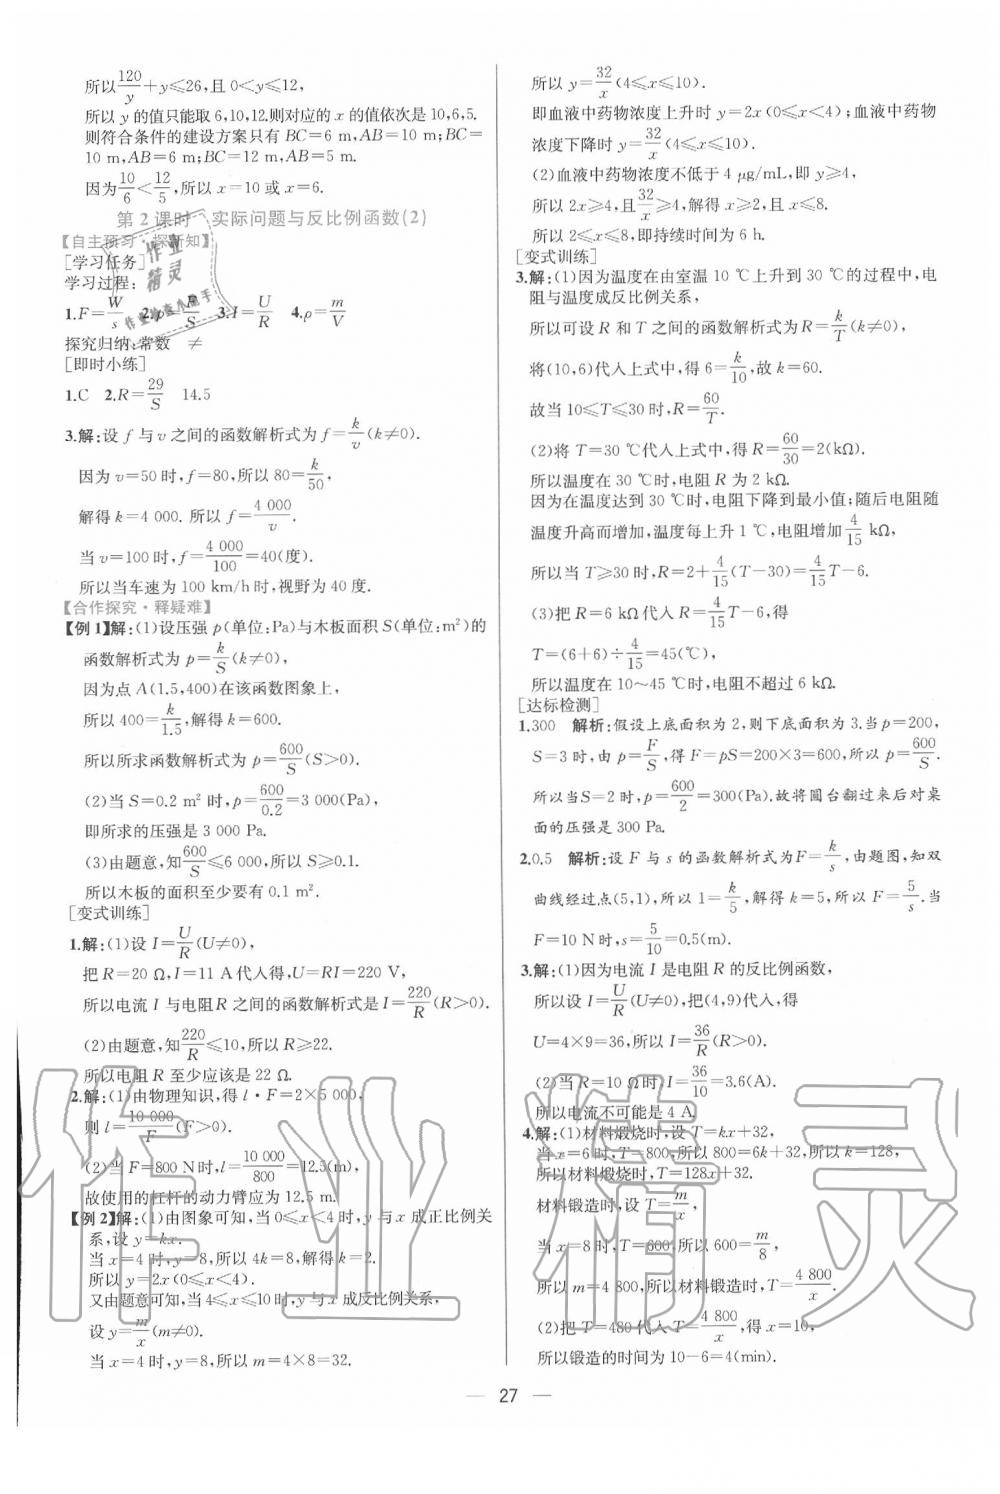 所以120/y+y≤26,且0<y≤12,
所以 y 的值只能取 6,10,12.则对应的 x 的值依次是 10,6,5.
则符合条件的建设方案只有 BC=6 m,AB=10 m;BC=
10 m,AB=6 m;BC=12 m,AB=5 m.
因为10/6<12/5,所以 x=10 或 x=6.
第 2 课时 实际问题与反比例函数(2)
【自主预习·探新知】
[学习任务]
学习过程:
1.F=W/s 2.p=F/S 3.I=U/R 4.ρ=m/V
探究归纳:常数 ≠
[即时小练]
1.C 2.R=29/S 14.5
3.解:设 f 与 v 之间的函数解析式为 f=k/v(k≠0).
因为 v=50 时,f=80,所以 80=k/50,
解得 k=4 000. 所以 f=4 000/v.
当 v=100 时,f=4 000/100=40(度).
所以当车速为 100 km/h 时,视野为 40 度.
【合作探究·释疑难】
【例 1】解:(1)设压强 p(单位:Pa)与木板面积 S(单位:m²)的
函数解析式为 p=k/S(k≠0),
因为点 A(1.5,400)在该函数图象上,
所以 400=k/1.5,解得 k=600.
所以所求函数解析式为 p=600/S(S>0).
(2)当 S=0.2 m² 时,p=600/0.2=3 000(Pa),
即所求的压强是 3 000 Pa.
(3)由题意,知600/S≤6 000,所以 S≥0.1.
所以木板的面积至少要有 0.1 m².
[变式训练]
1.解:(1)设 I=U/R(U≠0),
把 R=20 Ω,I=11 A代入得,U=RI=220 V,
所以电流 I 与电阻 R 之间的函数解析式是 I=220/R(R>0).
(2)由题意,知220/R≤10,所以 R≥22.
所以电阻 R 至少应该是 22 Ω.
2.解:(1)由物理知识,得 l·F=2×5 000,
则 l=10 000/F(F>0).
(2)当 F=800 N时,l=10 000/800=12.5(m).
故使用的杠杆的动力臂应为 12.5 m.
【例 2】解:(1)由图象可知,当 0≤x<4 时,y 与 x 成正比例关
系,设 y=kx.
当 x=4 时,y=8,所以 4k=8,解得 k=2.
所以 y=2x(0≤x<4).
又由题意可知,当 4≤x≤10 时,y 与 x 成反比例关系,
设 y=m/x(m≠0).
当 x=4 时,y=8,所以 m=4×8=32.
所以 y=32/x(4≤x≤10).
即血液中药物浓度上升时 y=2x(0≤x<4);血液中药物
浓度下降时 y=32/x(4≤x≤10).
(2)血液中药物浓度不低于 4 μg/mL,即 y≥4,
所以 2x≥4,且32/x≥4,解得 x≥2,且 x≤8,
所以 2≤x≤8,即持续时间为 6 h.
[变式训练]
3.解:(1)因为温度在由室温 10 ℃上升到 30 ℃的过程中,电
阻与温度成反比例关系,
所以可设 R 和 T 之间的函数解析式为 R=k/T(k≠0),
将(10,6)代入上式中,得 6=k/10,故 k=60.
故当 10≤T≤30 时,R=60/T.
(2)将 T=30 ℃代入上式中,得 R=60/30=2(kΩ).
所以温度在 30 ℃时,电阻 R 为 2 kΩ.
因为在温度达到 30 ℃时,电阻下降到最小值;随后电阻随
温度升高而增加,温度每上升 1 ℃,电阻增加 4/15 kΩ,
所以当 T≥30 时,R=2+4/15(T-30)=4/15T-6.
(3)把 R=6 kΩ代入 R=4/15T-6,得
T=(6+6)÷4/15=45(℃),
所以温度在 10~45 ℃时,电阻不超过 6 kΩ.
[达标检测]
1.300 解析:假设上底面积为 2,则下底面积为 3.当 p=200,
S=3 时,由 p=F/S,得 F=pS=200×3=600,所以 p=600/S.
所以当 S=2 时,p=600/2=300(Pa).故将圆台翻过来后对桌
面的压强是 300 Pa.
2.0.5 解析:设 F 与 s 的函数解析式为F=k/s,由题图,知双
曲线经过点(5,1),所以 1=k/5,解得 k=5,所以 F=5/s.当
F=10 N时,s=5/10=0.5(m).
3.解:(1)因为电流 I 是电阻 R 的反比例函数,
所以设 I=U/R(U≠0),把(4,9)代入,得
U=4×9=36,所以 I=36/R(R>0).
(2)当 R=10 Ω时,I=36/10=3.6(A).
所以电流不可能是 4 A.
4.解:(1)材料煅烧时,设 T=kx+32,
当 x=6 时,T=800,所以 800=6k+32,所以 k=128,
所以材料煅烧时,T=128x+32.
材料锻造时,设 T=m/x,
当 x=8 时,T=600,所以 600=m/8,
所以 m=4 800,所以材料锻造时,T=4 800/x.
(2)把 T=480 代入 T=4 800/x,得 x=10,
所以锻造的时间为 10-6=4(min).
— 27 —
作业精灵